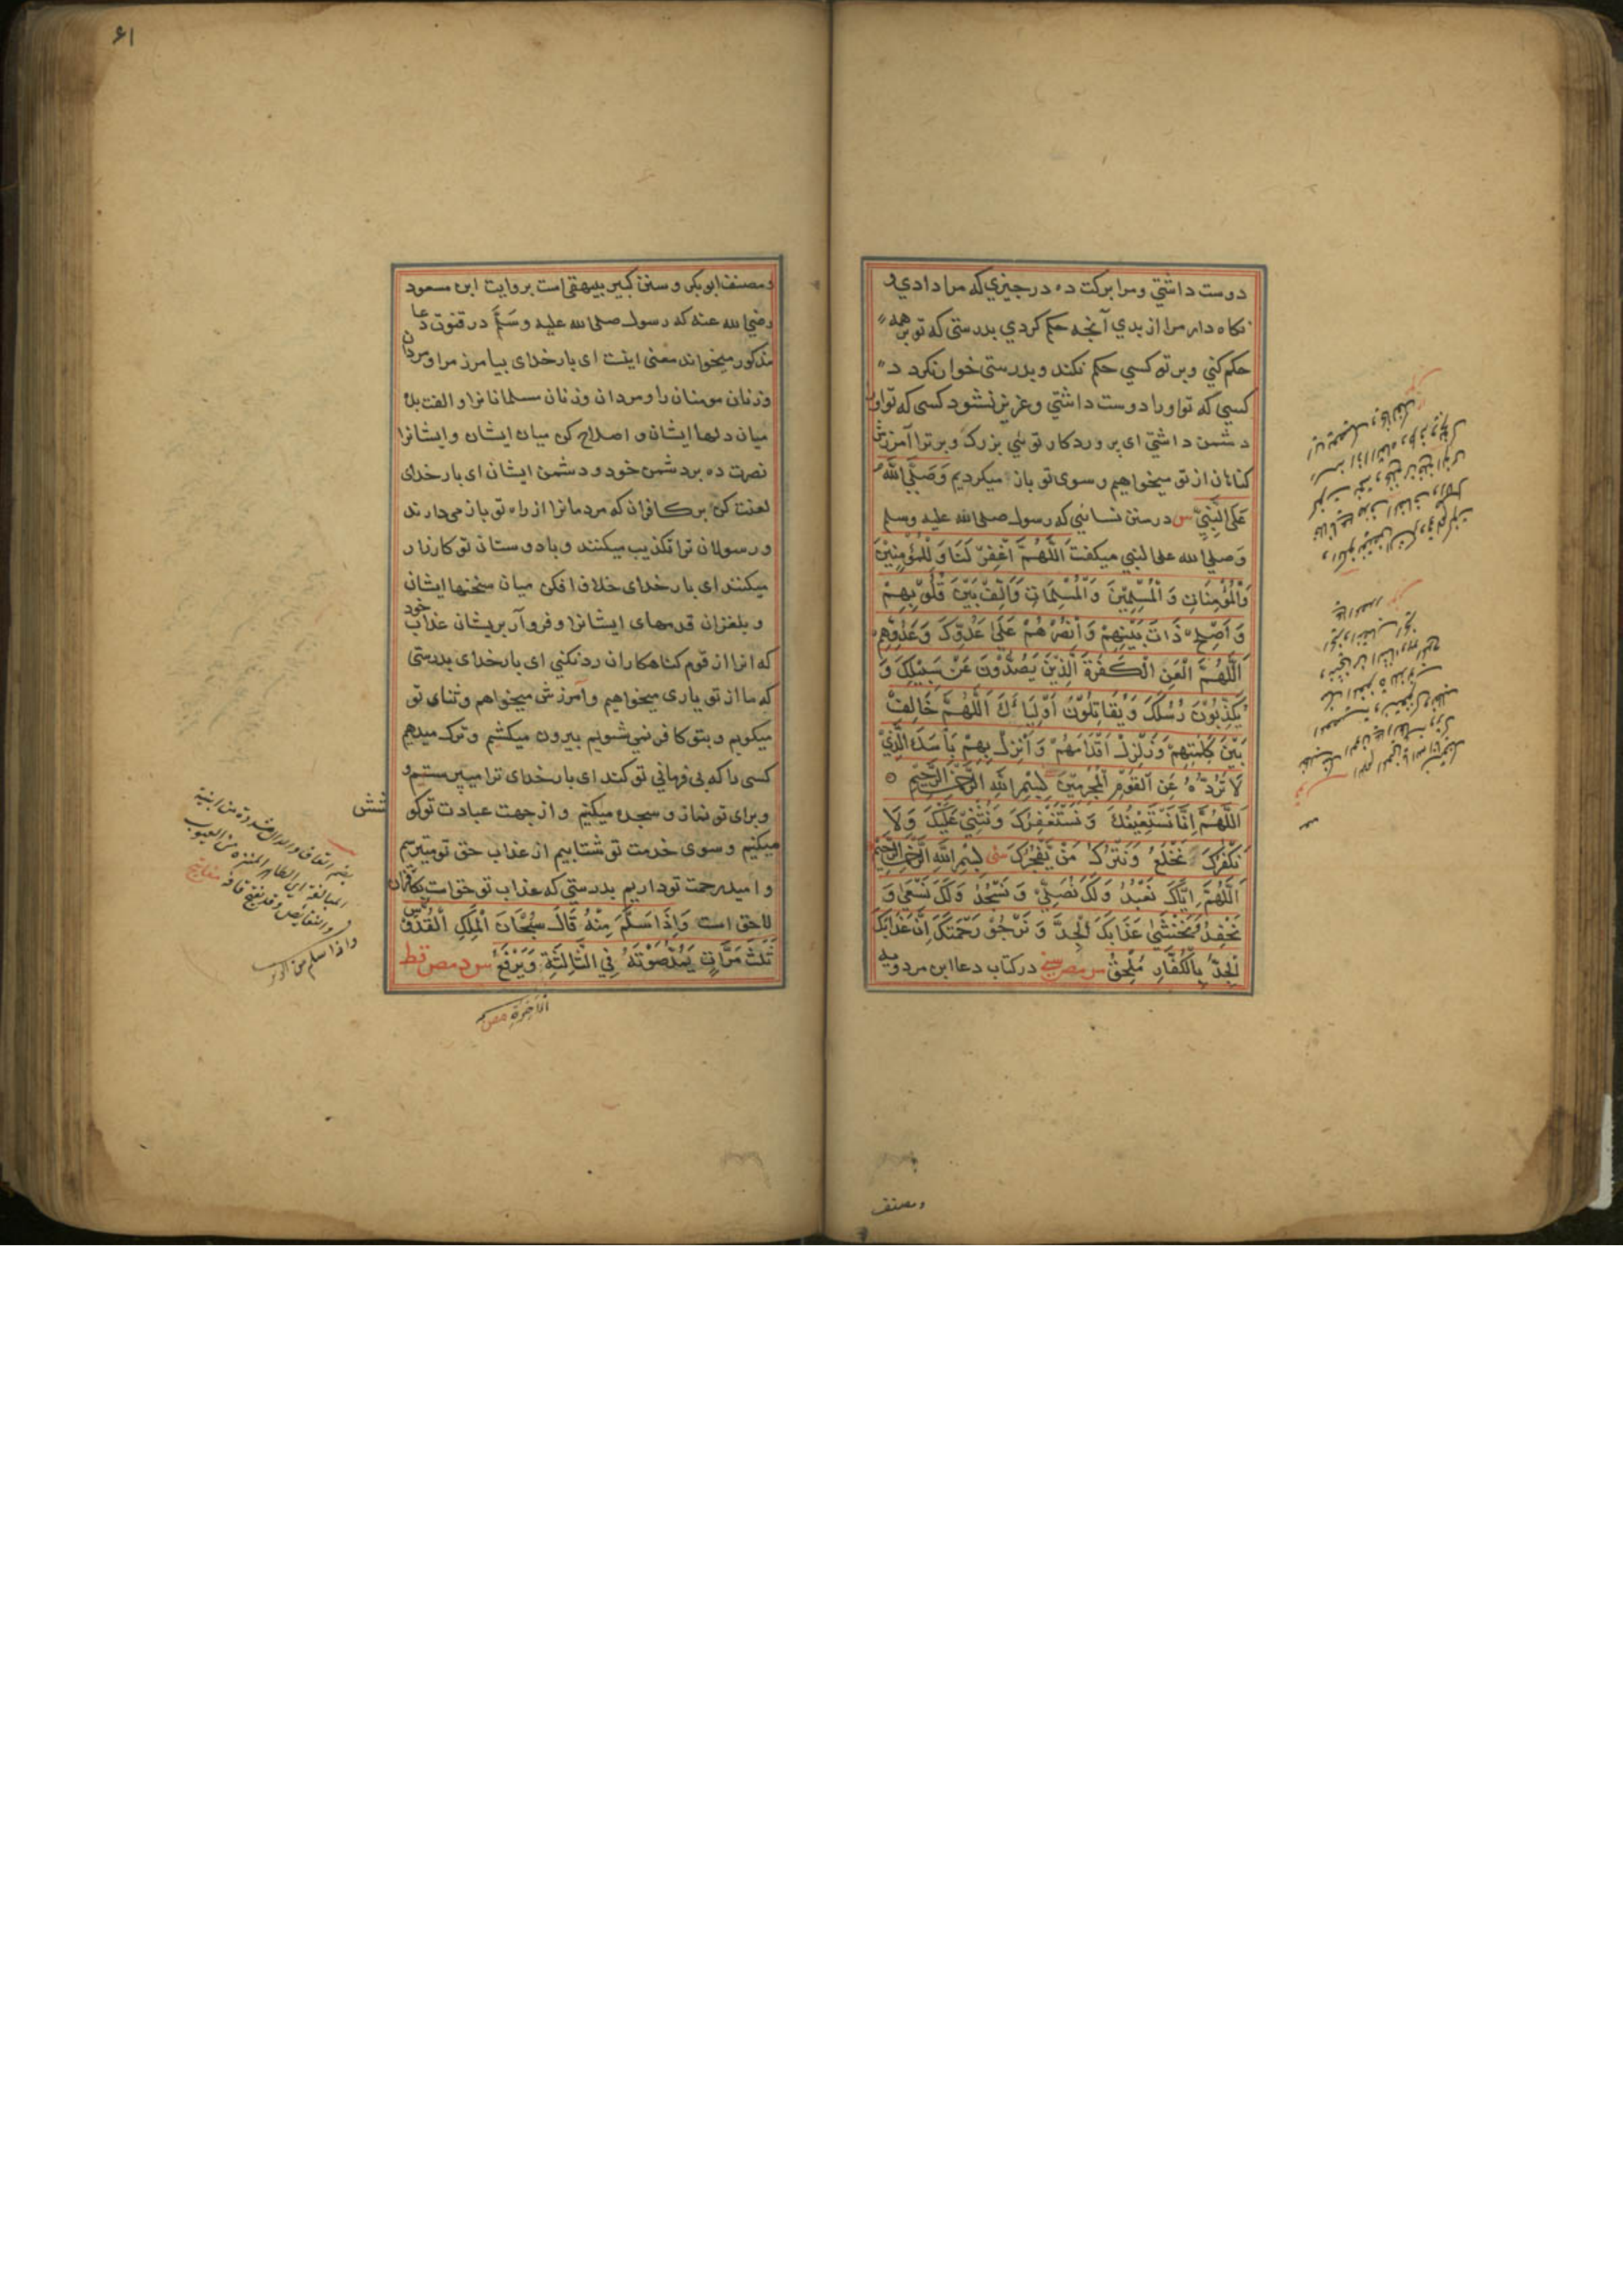 دوست داشتي ومرا بركت ده در چيزي كه مرا دادي و
نكاه دار مرا از بدي آنچه حكم كردي بدرستي كه تو بر همه
حكم كني وبر تو كسي حكم نكند وبدرستي خوار نكردد
كسي كه تو اورا دوست داشتي وعزيز نشود كسي كه تو اورا
دشمن داشتي اى پروردكار توئي بزرك وبرترا آمرزش
كناهان از تو ميخواهيم و سوى تو باز ميكرديم وَصَلَّى اللّٰهُ
عَلَى النَّبِيِّ س در سنن نسائي كه رسول صلى الله عليه وسلم
وصلى الله على النبي ميكفت اَللّٰهُمَّ اغْفِرْ لَنَا وَلِلْمُؤْمِنِيْنَ
وَالْمُؤْمِنَاتِ وَالْمُسْلِمِيْنَ وَالْمُسْلِمَاتِ وَاَلِّفْ بَيْنَ قُلُوْبِهِمْ
وَاَصْلِحْ ذَاتَ بَيْنِهِمْ وَانْصُرْهُمْ عَلٰى عَدُوِّكَ وَعَدُوِّهِمْ
اَللّٰهُمَّ الْعَنِ الْكَفَرَةَ الَّذِيْنَ يَصُدُّوْنَ عَنْ سَبِيْلِكَ وَ
يُكَذِّبُوْنَ رُسُلَكَ وَيُقَاتِلُوْنَ اَوْلِيَاءَكَ اَللّٰهُمَّ خَالِفْ
بَيْنَ كَلِمَتِهِمْ وَزَلْزِلْ اَقْدَامَهُمْ وَاَنْزِلْ بِهِمْ بَاْسَكَ الَّذِيْ
لَا تَرُدُّهُ عَنِ الْقَوْمِ الْمُجْرِمِيْنَ بِسْمِ اللّٰهِ الرَّحْمٰنِ الرَّحِيْمِ
اَللّٰهُمَّ اِنَّا نَسْتَعِيْنُكَ وَنَسْتَغْفِرُكَ وَنُثْنِيْ عَلَيْكَ وَلَا
نَكْفُرُكَ وَنَخْلَعُ وَنَتْرُكُ مَنْ يَّفْجُرُكَ بِسْمِ اللّٰهِ الرَّحْمٰنِ الرَّحِيْمِ
اَللّٰهُمَّ اِيَّاكَ نَعْبُدُ وَلَكَ نُصَلِّيْ وَنَسْجُدُ وَلَكَ نَسْعٰى وَ
نَحْفِدُ وَنَخْشٰى عَذَابَكَ الْجِدَّ وَنَرْجُوْ رَحْمَتَكَ اِنَّ عَذَابَكَ
الْجِدَّ بِالْكُفَّارِ مُلْحِقٌ مو مص سنى در كتاب دعا ابن مردويه
ومصنف
۶۱
ومصنف ابو بكر و سنن كبير بيهقى است بروايت ابن مسعود
رضي الله عنه كه رسول صلى الله عليه وسَلَّمَ در قنوت دعا
مذكور ميخواند معنى اينست اى بار خداى بيامرز مرا ومردان
وزنان مومنان را ومردان وزنان مسلمانانرا والفت بده
ميان دلها ايشان و اصلاح كن ميان ايشان وايشانرا
نصرت ده بر دشمن خود و دشمن ايشان اى بار خداى
لعنت كن بر كافران كه مردمانرا از راه تو باز مى دارند
و رسولان ترا تكذيب ميكنند و با دوستان تو كارزار
ميكنند اى بار خداى خلاف افكن ميان سخنها ايشان
و بلغزان قدمهاى ايشانرا و فرو آر بريشان عذاب خود
كه انرا از قوم كناهكاران رد نكني اى بار خداى بدرستى
كه ما از تو يارى ميخواهيم وآمرزش ميخواهم و ثناى تو
ميكويم و بتو كافر نمى شويم بيرون ميكشيم و ترك ميدهم
كسى را كه بى فرمانى تو كند اى بار خداى ترا ميپرستيم و
وبراى تو نماز و سجده ميكنيم و از جهت عبادت تو كو
شش
ميكنيم و سوى خدمت تو شتابيم از عذاب حق تو ميترسم
و اميد رحمت تو داريم بدرستي كه عذاب تو حق است بكافران
لاحق است وَاِذَا سَلَّمَ مِنْهُ قَالَ سُبْحَانَ الْمَلِكِ الْقُدُّوْسِ
ثَلٰثَ مَرَّاتٍ يَمُدُّ صَوْتَهُ فِي الثَّالِثَةِ وَيَرْفَعُ س د مص قط
الاخرة مص
بضم القاف والدال المشددة من ابنية
المبالغة اى الطاهر المنزه من العيوب
والنقائص وقد يفتح قافه مفاتيح
واذا سلم من الوتر